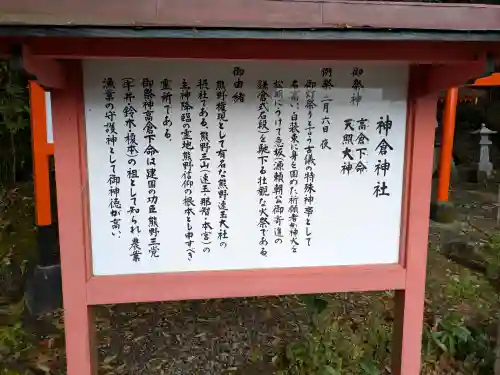 神倉神社
御祭神 高倉下命
天照大神
例祭 二月六日夜
御灯祭りと言う古儀の特殊神事として
名高い。白装束に身を固めた祈願者が神火を
松明につけて急坂（源頼朝公御寄進の
鎌倉式石段）を馳下る壮観な火祭である。
御由緒
熊野権現として有名な熊野速玉大社の
摂社である。熊野三山（速玉・那智・本宮）の
主神降臨の霊地熊野信仰の根本とも申すべき
霊所である。
御祭神高倉下命は建国の功臣熊野三党
（宇井・鈴木・榎本）の祖として知られ農業
漁業の守護神として御神徳が高い。